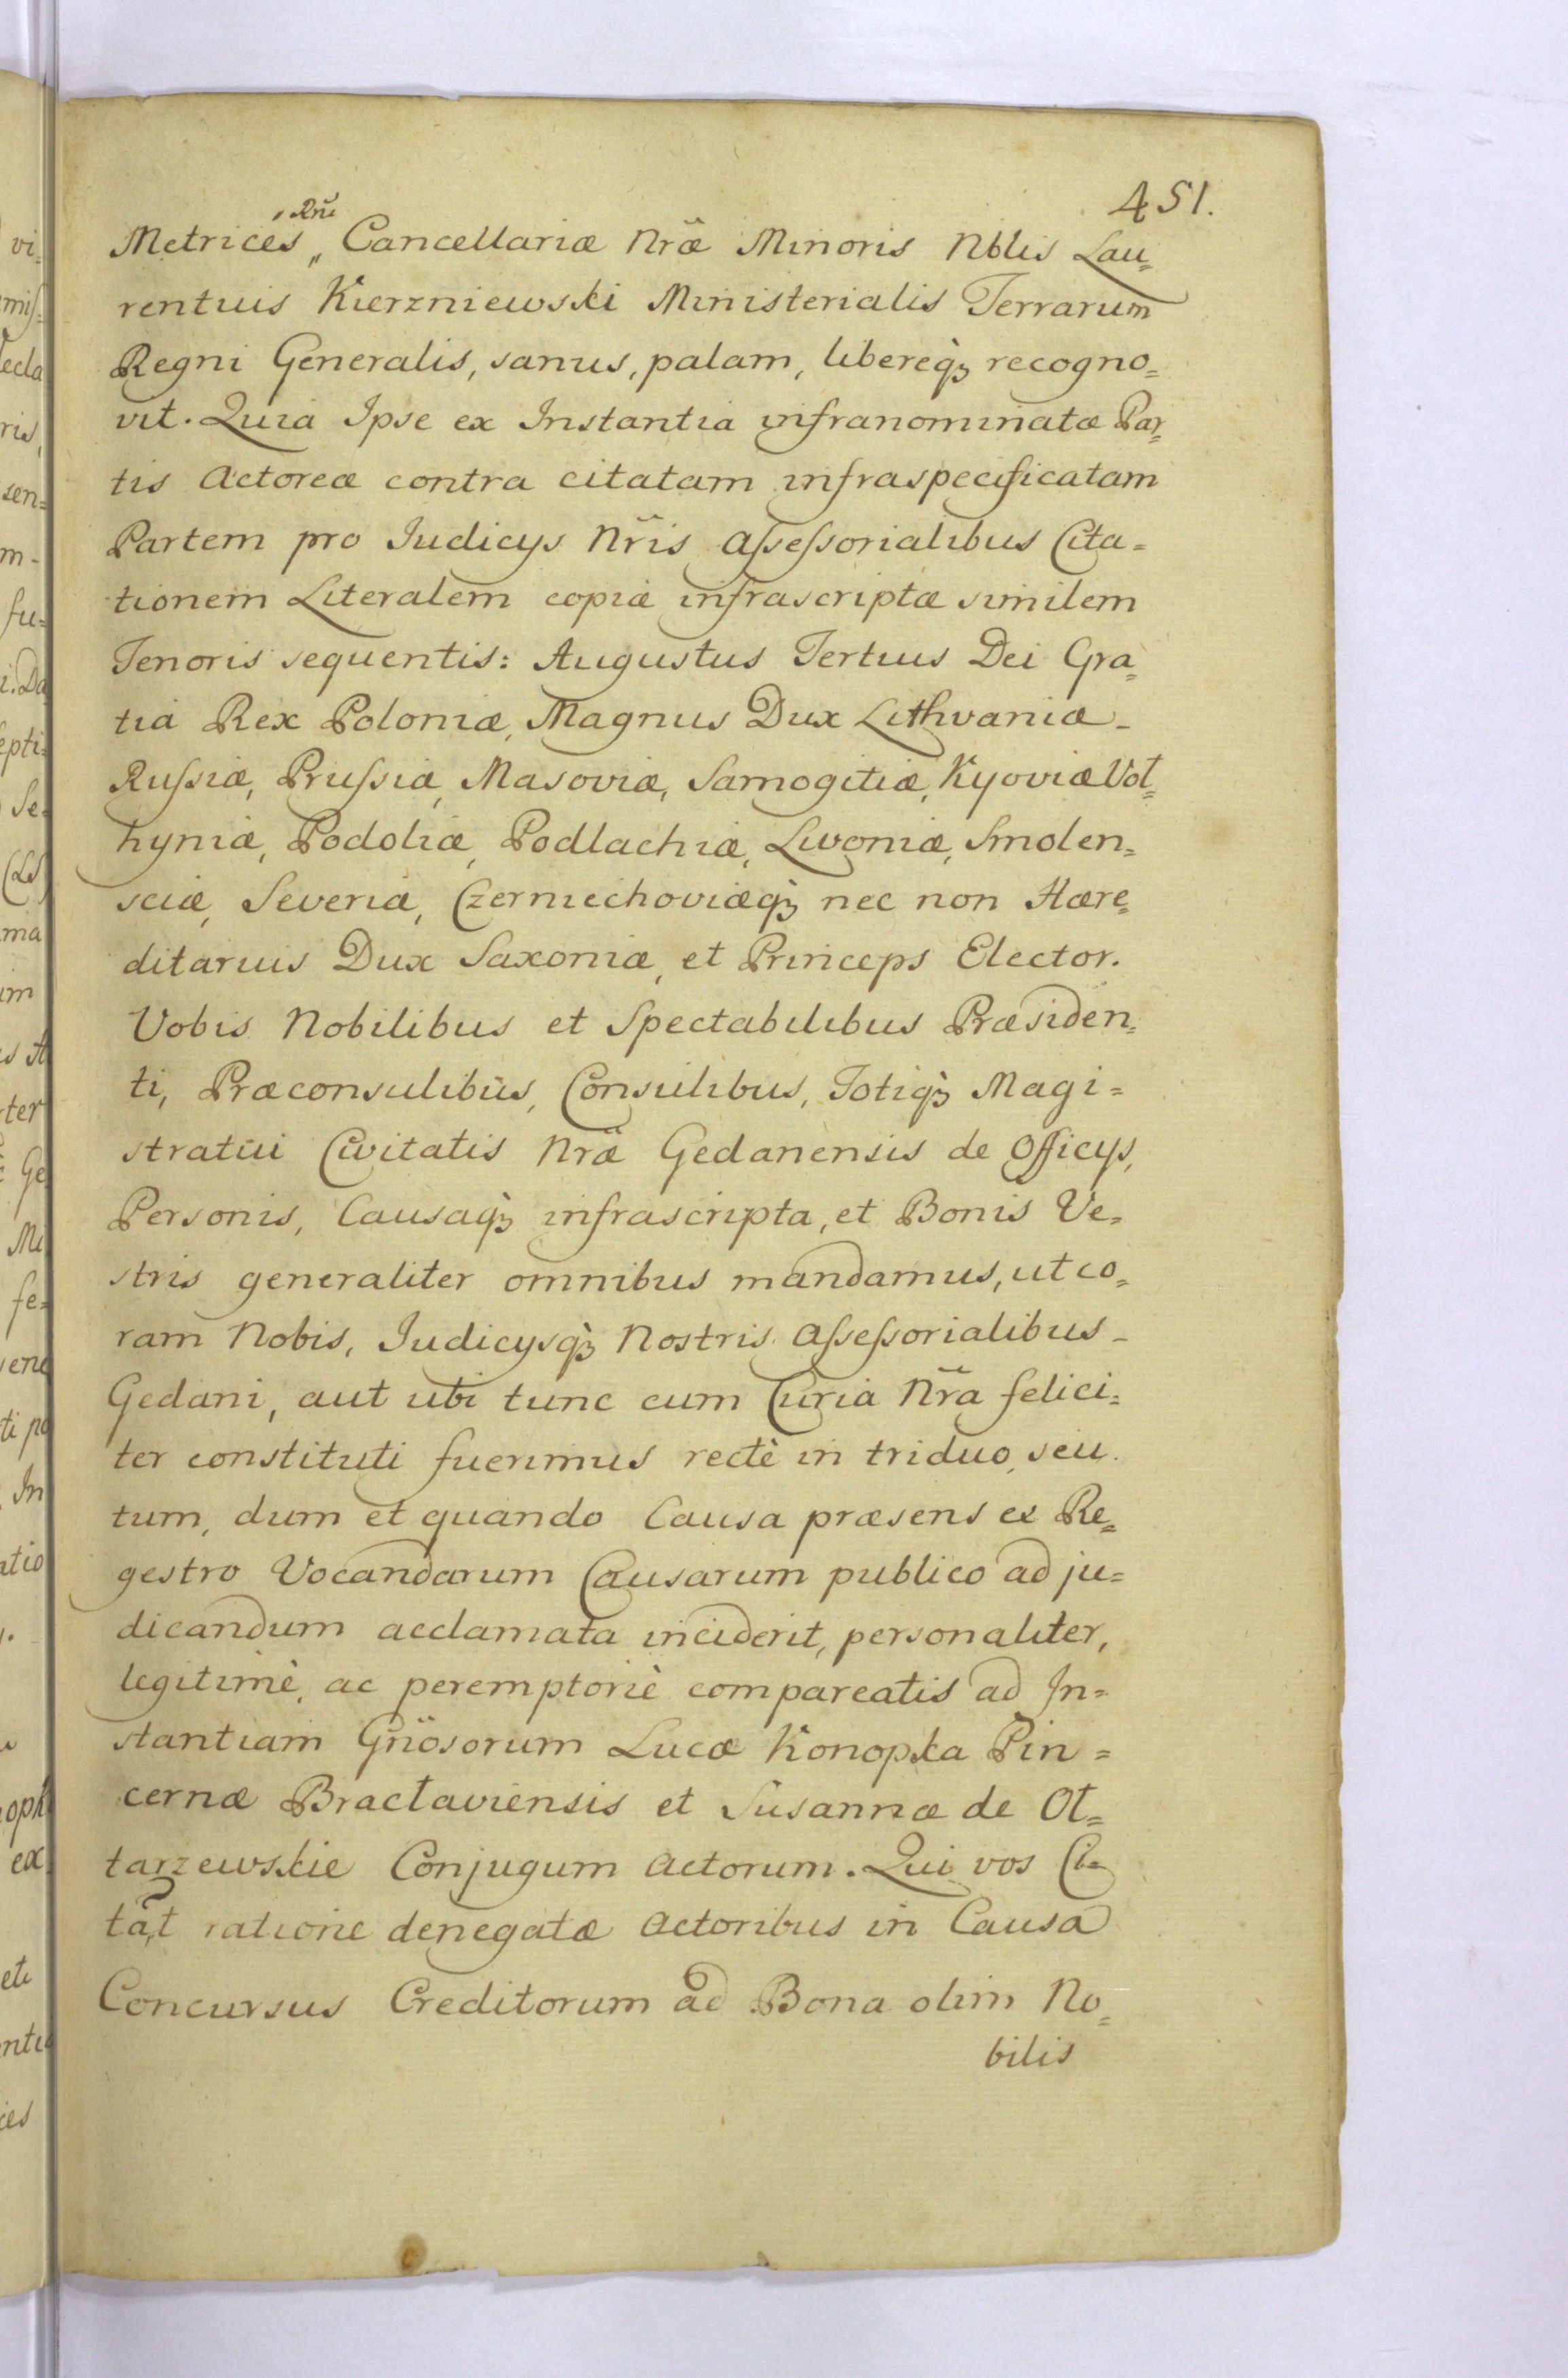 451.
Metrices „Rni„ Cancellariæ Nræ Minoris Nblis Lau=
rentius Kierzniewski Ministerialis Terrarum
Regni Generalis, sanus, palam, libereq3 recogno=
vit. Quia Ipse ex Instantia infranominatæ Par=
tis Actoreæ contra citatam infraspecificatam
Partem pro Iudicys Nris Aſseſsorialibus Cita=
tionem Literalem copiæ infrascriptæ similem
Tenoris sequentis: Augustus Tertius Dei Gra=
tia Rex Poloniæ, Magnus Dux Lithvaniæ
Ruſsiæ, Pruſsiæ, Masoviæ, Samogitiæ, Kyoviæ Vol=
hyniæ, Podoliæ, Podlachiæ, Livoniæ, Smolen=
sciæ, Severiæ, Czerniechoviæq3 nec non Hære=
ditarius Dux Saxoniæ, et Princeps Elector.
Vobis Nobilibus et Spectabilibus Præsiden=
ti, Præconsulibus, Consulibus, Totiq3 Magi=
stratui Civitatis Nræ Gedanensis de Officys,
Personis, Causaq3 infrascripta, et Bonis Ve=
stris generaliter omnibus mandamus, ut co=
ram Nobis, Iudicysq3 Nostris Aſseſsorialibus
Gedani, aut ubi tunc cum Curia Nra felici=
ter constituti fuerimus rectè in triduo, seu
tum, dum et quando Causa præsens ex Re=
gestro Vocandarum Causarum publico ad ju=
dicandum acclamata inciderit, personaliter,
legitimè, ac peremptoriè compareatis ad In=
stantiam Gnosorum Lucæ Konopka Pin=
cernæ Braclaviensis et Susannæ de Ol=
tarzewskie Conjugum Actorum. Qui vos Ci=
tãt ratione denegatæ Actoribus in Causa
Concursus Creditorum ad Bona olim No=
bilis